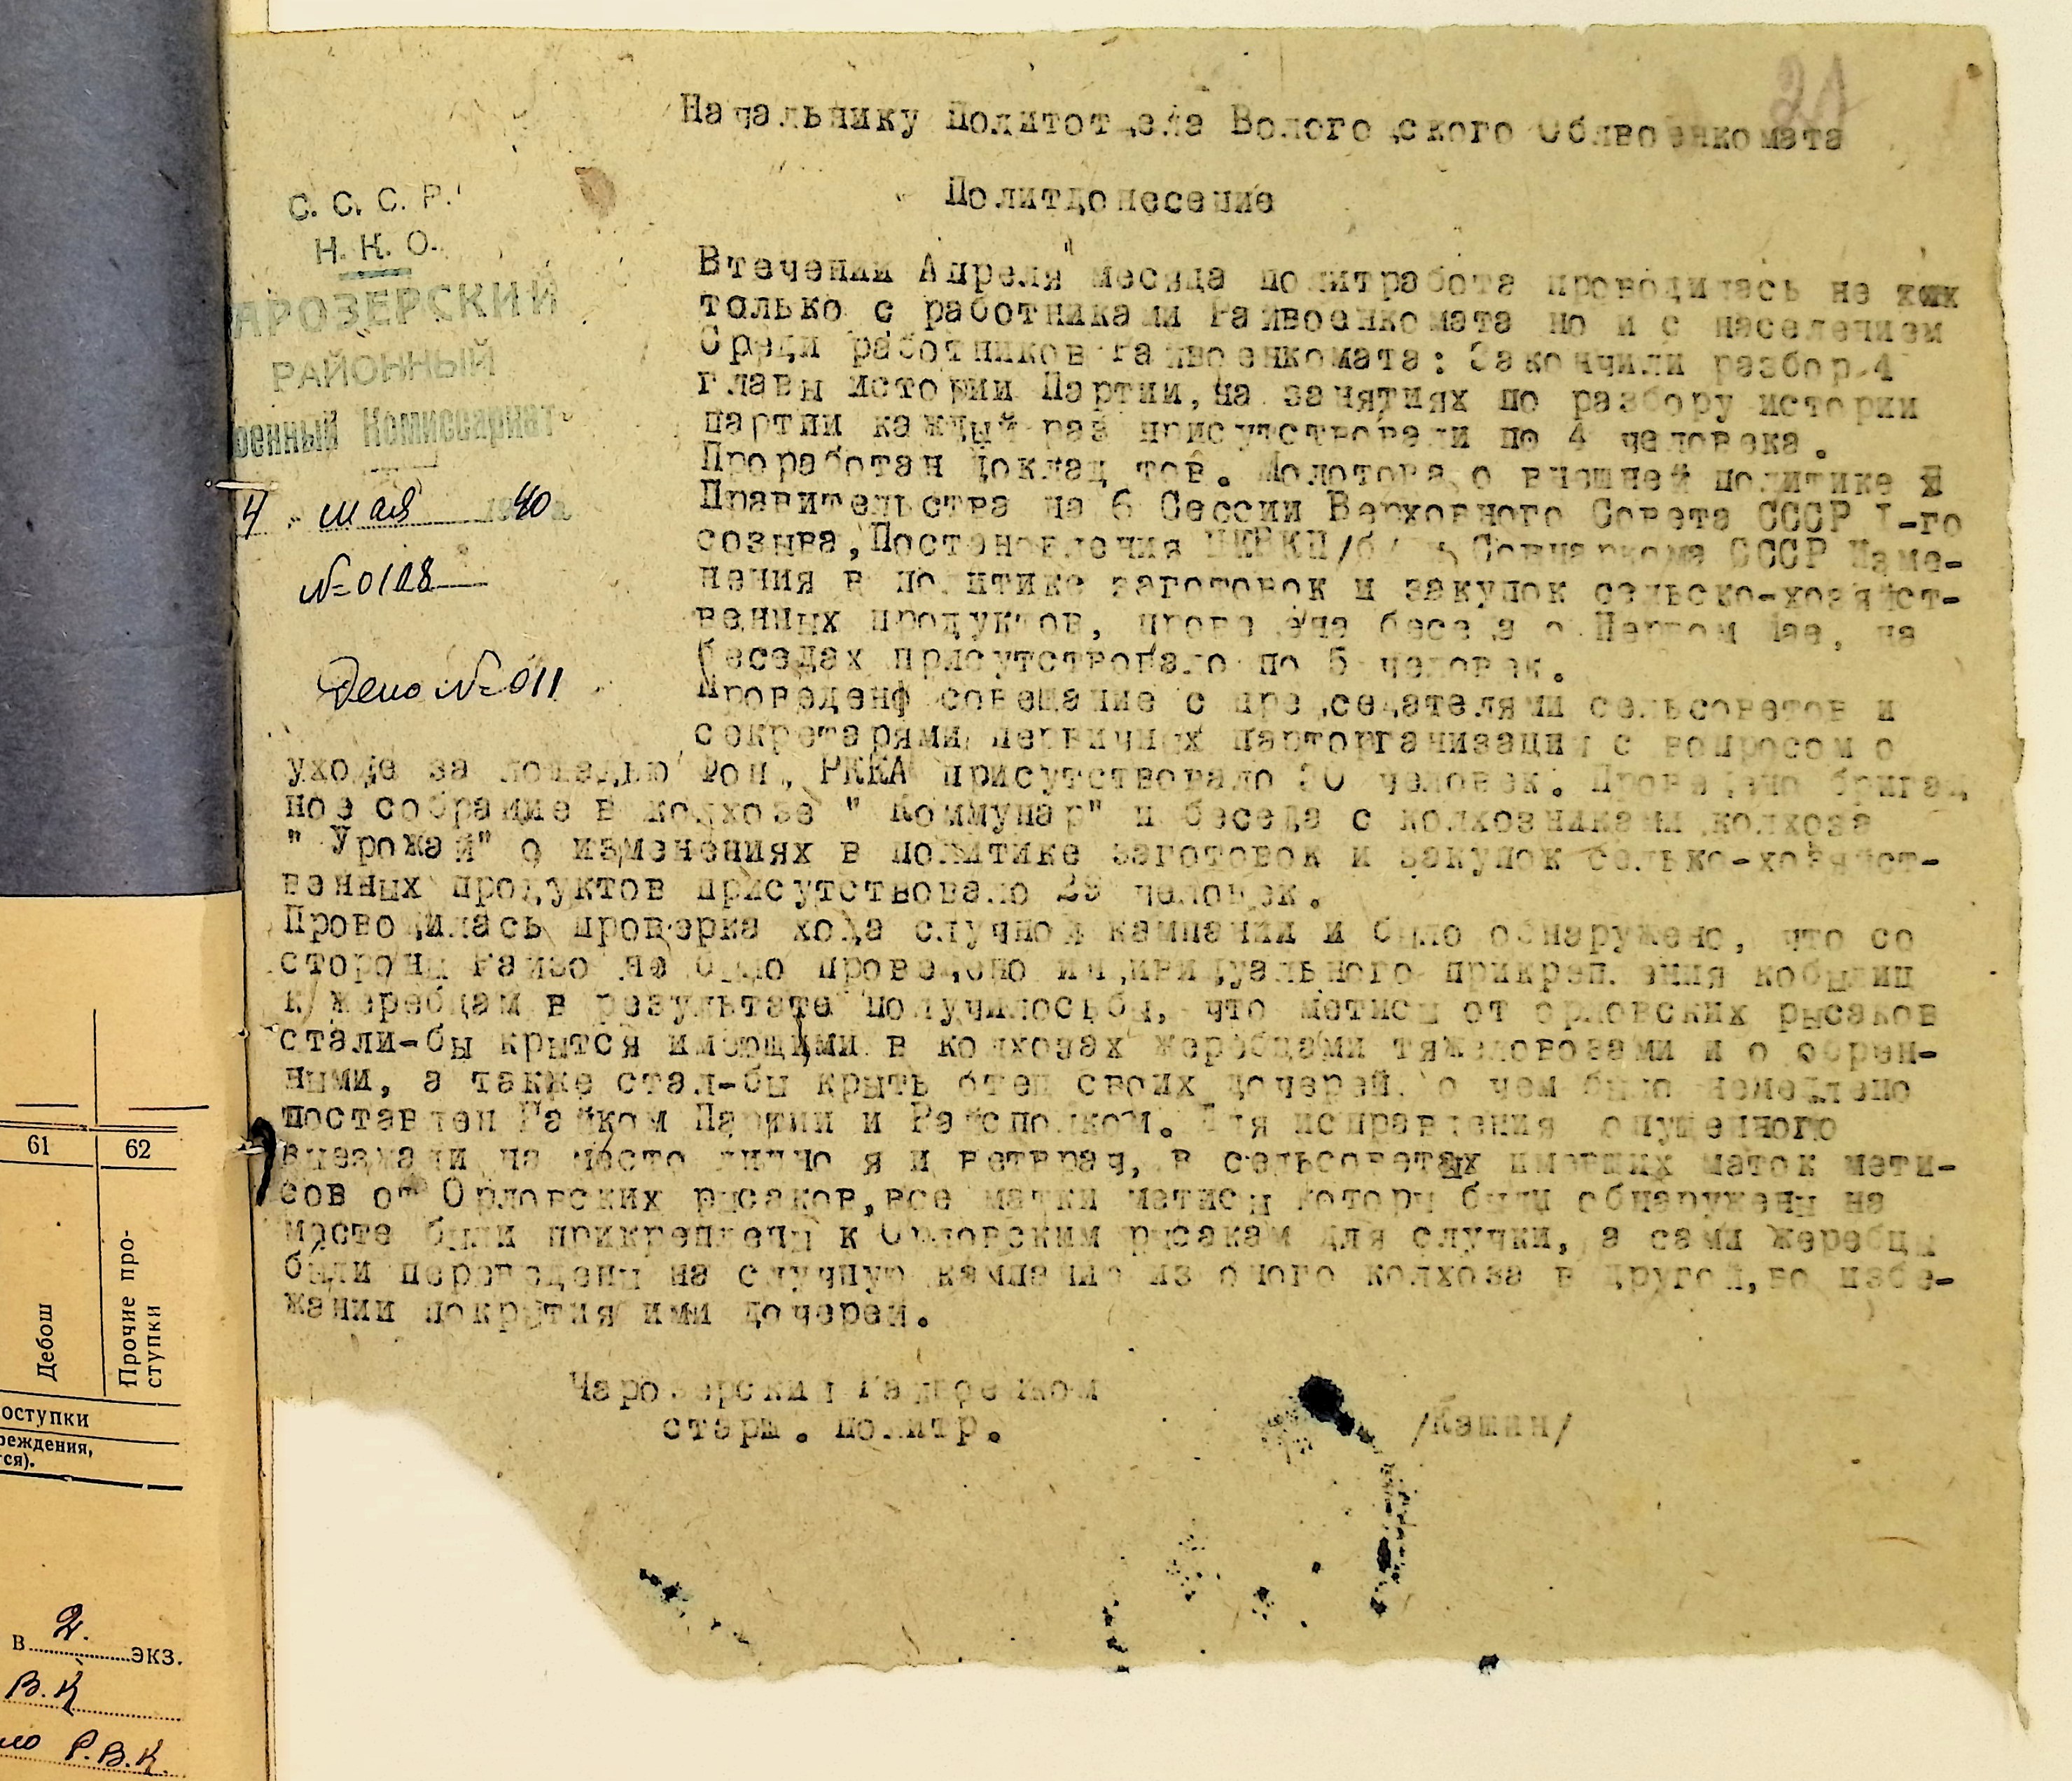 21
Начальнику Политотдела Вологодского Облвоенкомата
Политдонесение
С. С. С. Р.
Н. К. О.
АРОЗЕРСКИЙ
РАЙОННЫЙ
оенный Комиссариат
4 " мая 1940 г.
№ 0128
Дело № 011
Втечении Апреля месяца политработа проводилась не
только с работниками Райвоенкомата но и с населением
Среди работников райвоенкомата: Закончили разбор 4
главы истории Партии, на занятиях по разбору истории
партии каждый раз присутствовали по 4 человека.
Проработан доклад тов. Молотова о внешней политике
Правительства на 6 Сессии Верховного Совета СССР I-го
созыва, Постановления ЦКВКП/б/ Совнаркома СССР Изме-
нения в политике заготовок и закупок сельско-хозяйст-
венных продуктов, проведена беседа о Первом Мае, на
беседах присутствовало по 5 человек.
Проведенф совещание с председателями сельсоветов и
секретарями первичных парторганизаций с вопросом о
уходе за лошадью Фон. РККА присутствовало 30 человек. Проведено бригад
ное собрание в колхозе " Коммунар" и беседа с колхозниками колхоза
" Урожай" о изменениях в политике заготовок и закупок селько-хозяйст-
венных продуктов присутствовало 29 человек.
Проводилась проверка хода случной кампании и было обнаружено, что со
стороны Райзо не было проведено индивидуального прикрепления кобылиц
к жеребцам в результате получилосьбы, что метисы от орловских рысаков
стали-бы крытся имеющими в колхозах жеребцами тяжеловозами и
ными, а также стал-бы крыть отец своих дочерей, о чем было немедлено
поставлен Райком Партии и Райсполком. Для исправления опущенного
выезжали на место лично я и ветврач, в сельсоветах имевших маток мети-
сов от Орловских рысаков, все матки метисы которы были обнаружены на
месте были прикреплены к Орловским рысакам для случки, а сами жеребцы
были переведены на случную кампанию из оного колхоза в другой, во избе-
жании покрытия ими дочерей.
Чарозерский Райвоенком
старш. политр. /Кашин/
61 62
Дебош
Прочие про-
ступки
оступки
реждения,
тся).
в 2. экз.
В.К
Р.В.К.